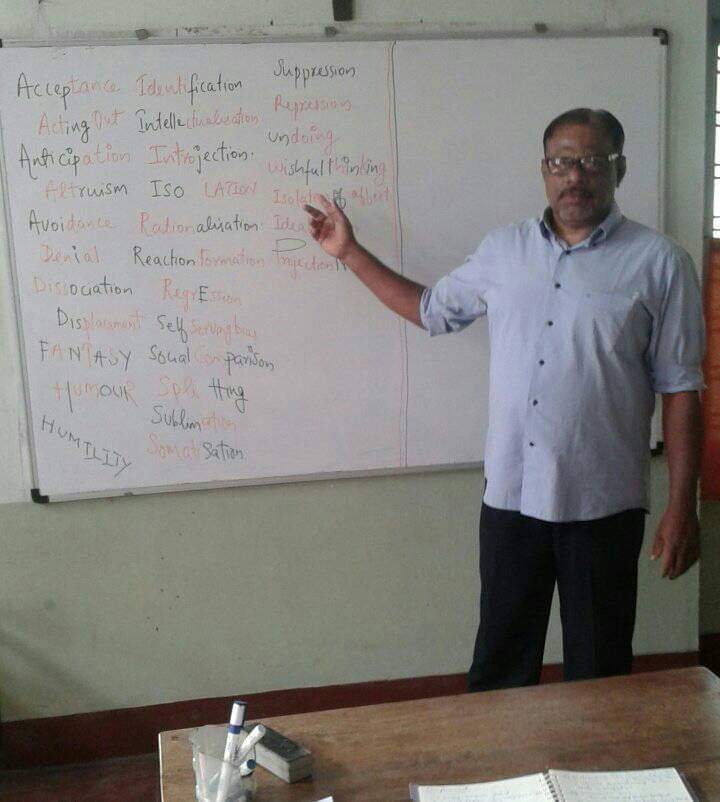 Acceptance
Acting Out
Anticipation
Altruism
Avoidance
Denial
Dissociation
Displacment
FANTASY
HUMOUR
HUMILITY
Identification
Intellectualisation
Introjection.
ISOLATION
Rationalisation.
Reaction Formation
RegrEssion
Self Serving bias
Social Comparison
Splitting
Sublimation
Somatisation
Suppression
Repression
undoing
wishfull thinking
of affect
Idea
Projection